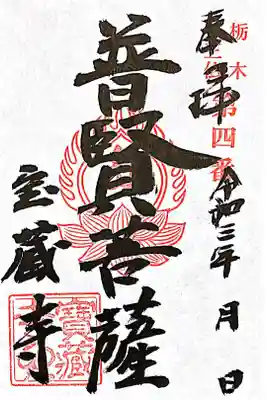 奉拝
栃木
第四番
令和三年 月 日
普賢菩薩
宝蔵寺
寶蔵